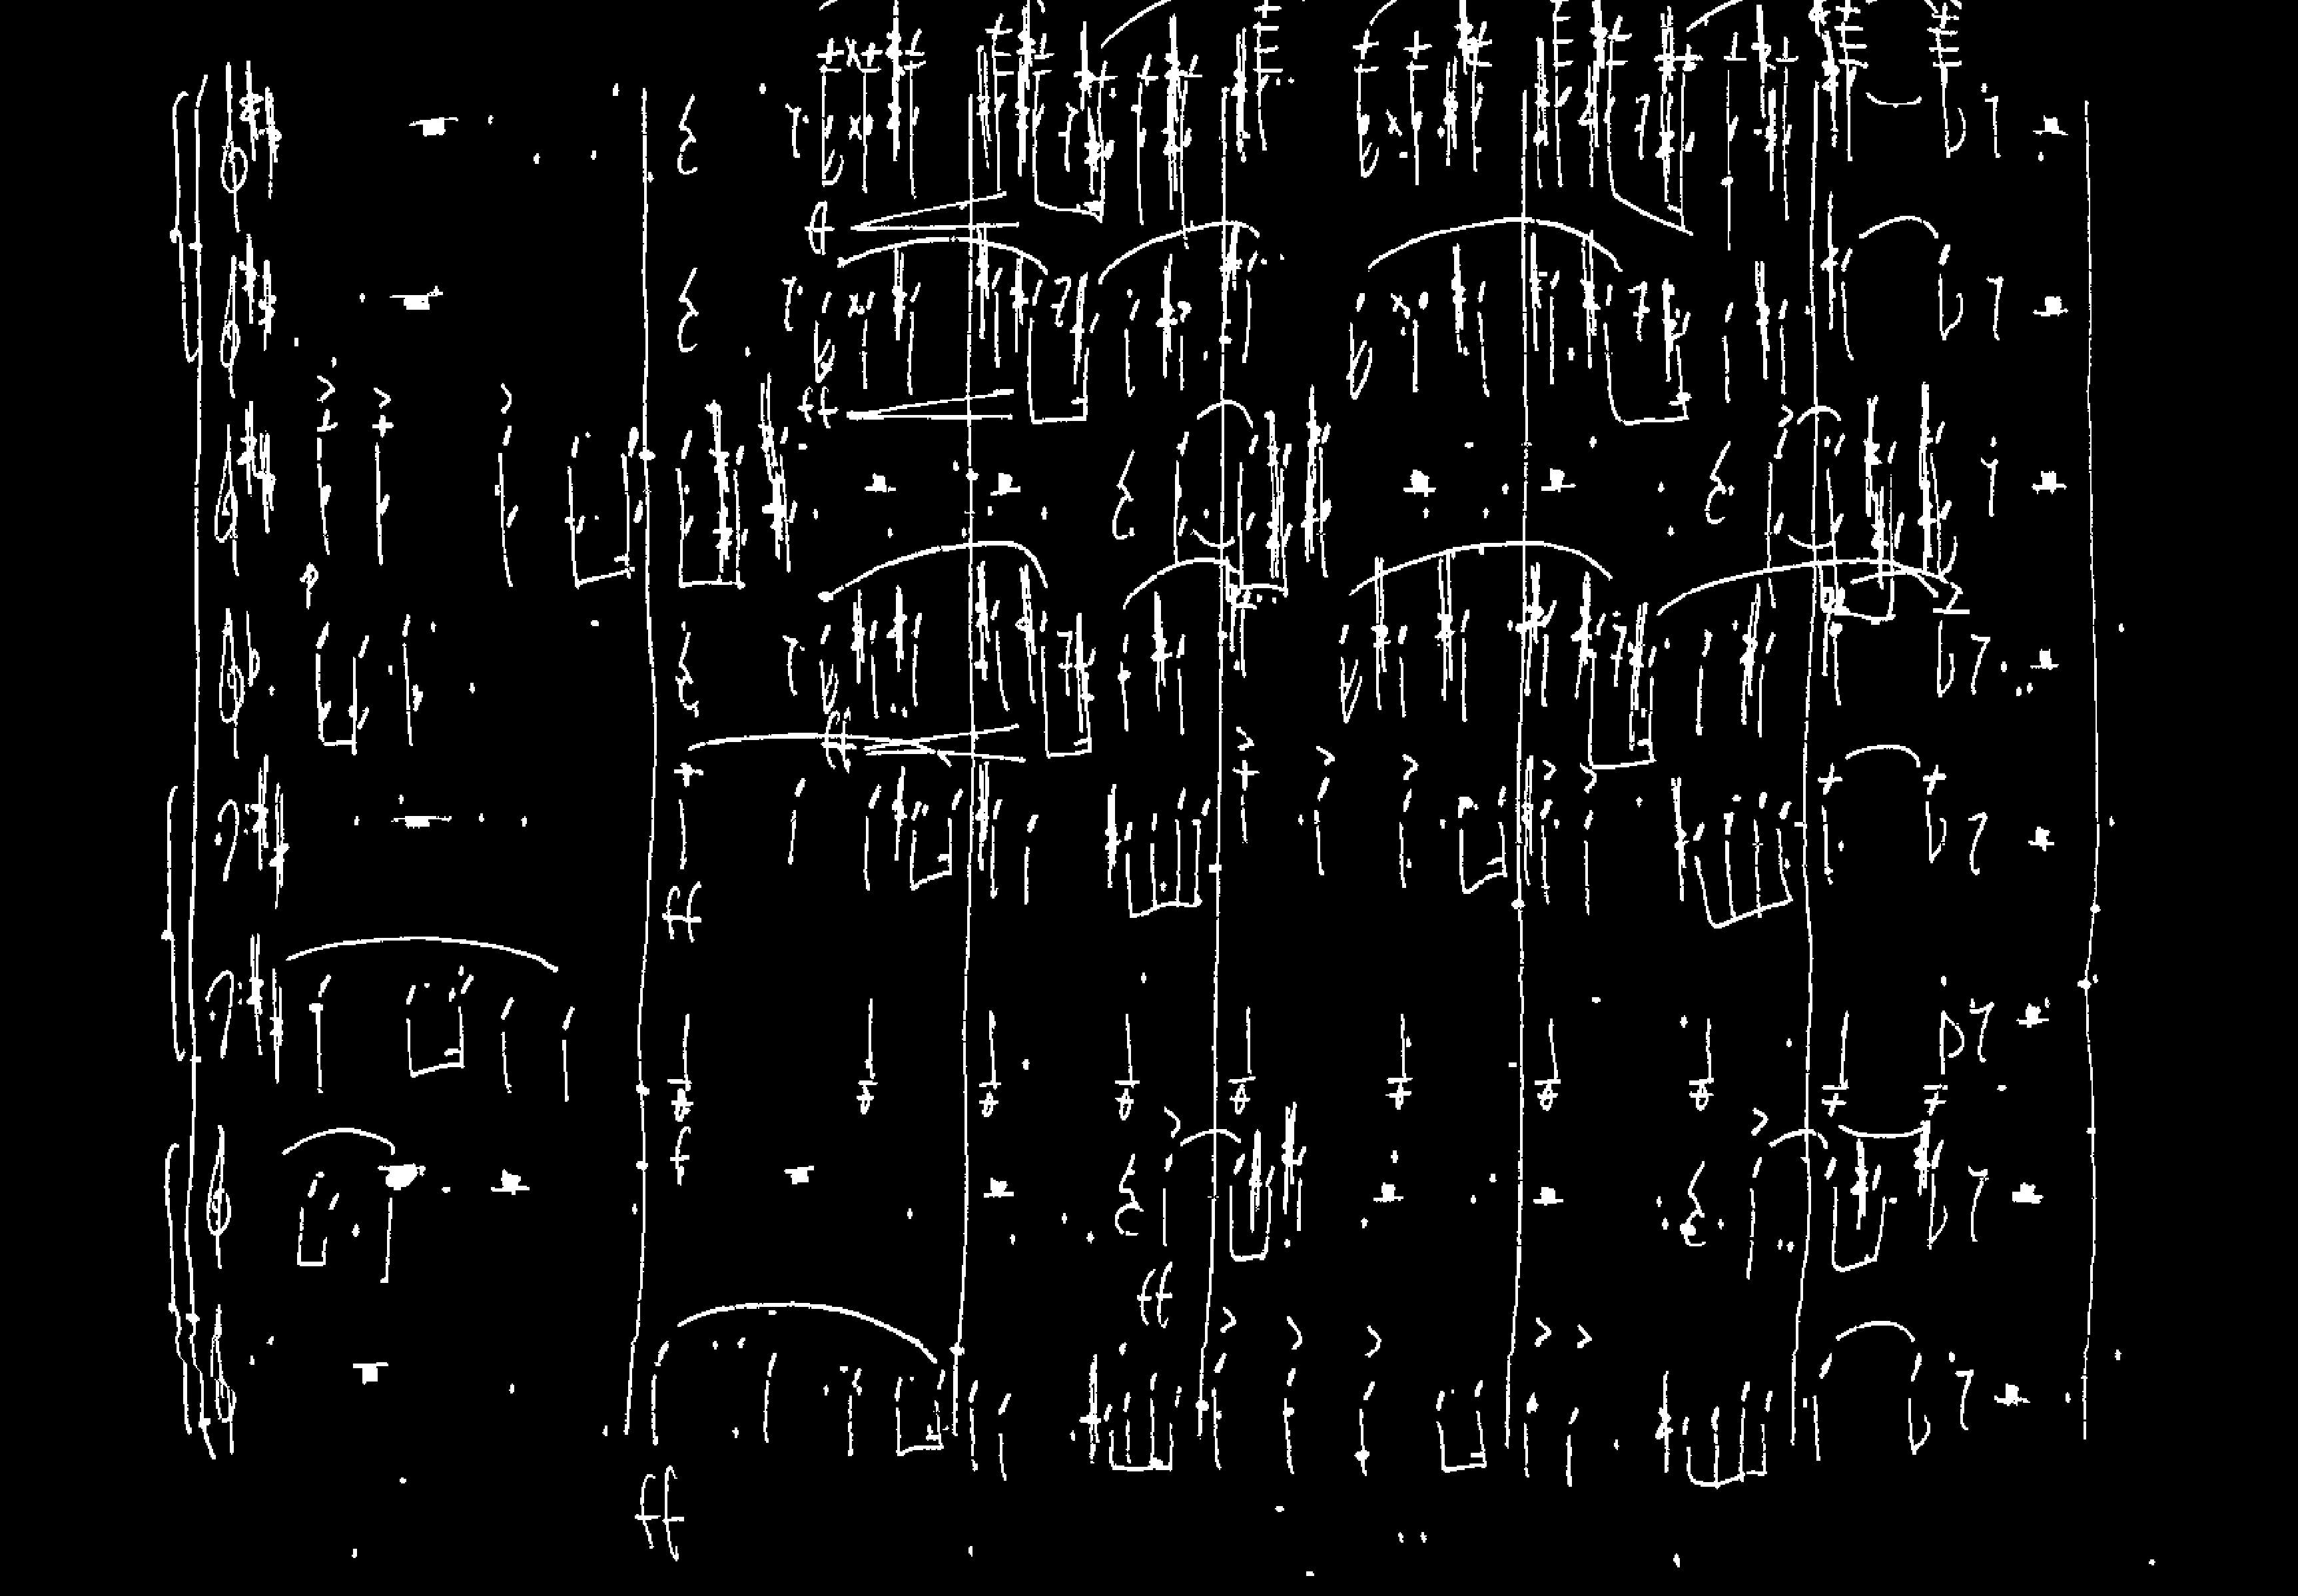 ff
ff
ff
f
ff
ff